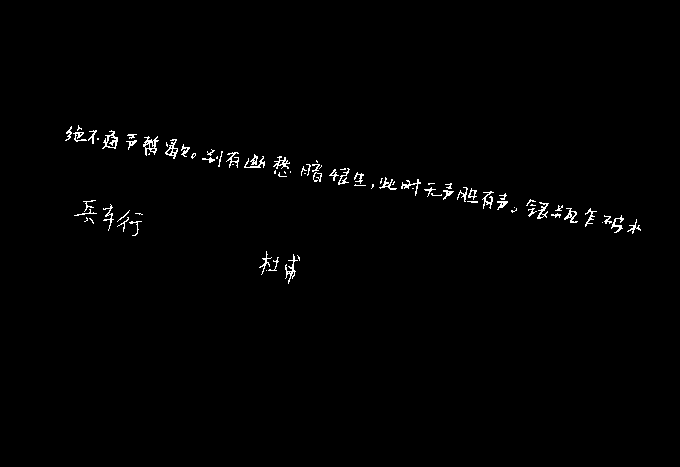 绝不通声暂歇。别有幽愁暗恨生,此时无声胜有声。银瓶乍破水
兵车行
杜甫